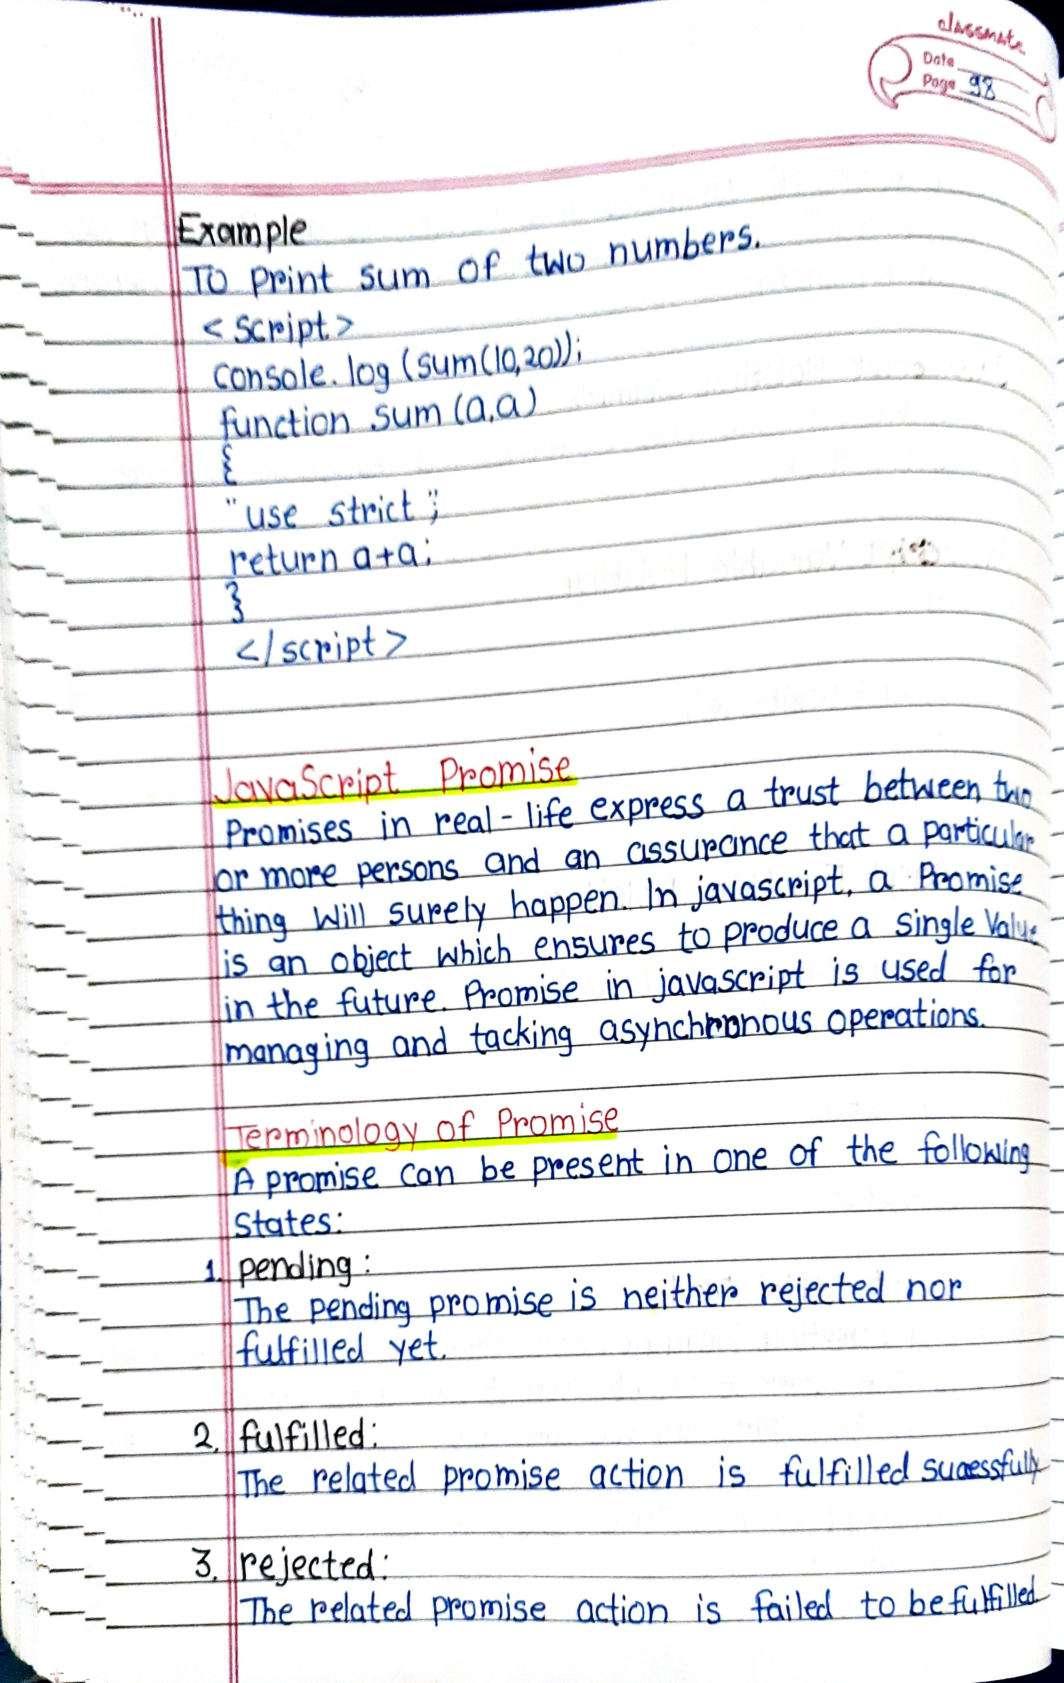 classmate
Date
Page 98
Example
To print sum of two numbers.
<script>
console.log (sum(10,20));
function sum (a,a)
{
"use strict";
return a+a;
}
</script>
JavaScript Promise
Promises in real-life express a trust between two
or more persons and an assurance that a particular
thing will surely happen. In javascript, a Promise
is an object which ensures to produce a single value
in the future. Promise in javascript is used for
managing and tacking asynchronous operations.
Terminology of Promise
A promise can be present in one of the following
states:
1. pending:
The pending promise is neither rejected nor
fulfilled yet.
2. fulfilled:
The related promise action is fulfilled sucessfully
3. rejected:
The related promise action is failed to be fulfilled